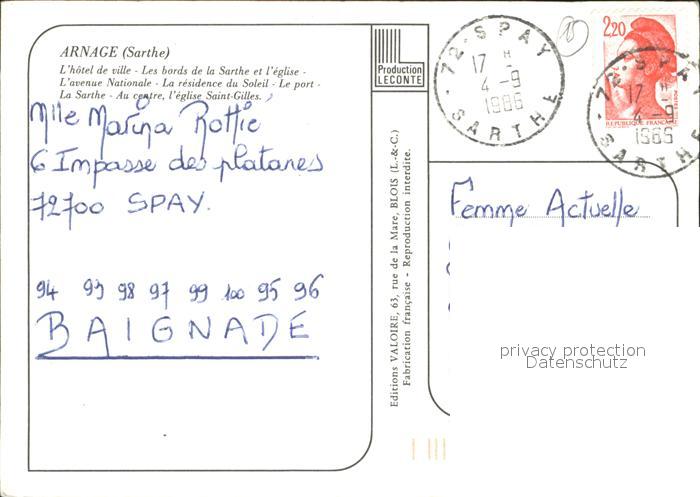 ARNAGE (Sarthe)
L'hôtel de ville - Les bords de la Sarthe et l'église -
L'avenue Nationale - La résidence du Soleil - Le port -
La Sarthe - Au centre, l'église Saint-Gilles.
Mlle Marina Rottié
6 Impasse des platanes
72700 SPAY.
94 93 98 97 99 100 95 96
BAIGNADE
Production
LECONTE
Editions VALOIRE, 63, rue de la Mare, BLOIS (L.-&-C.)
Fabrication française - Reproduction interdite.
72-SPAY
17 H
4-9
1986
SARTHE
2,20
REPUBLIQUE FRANÇAISE
72-SPAY
17 H
4-9
1986
SARTHE
Femme Actuelle
privacy protection
Datenschutz